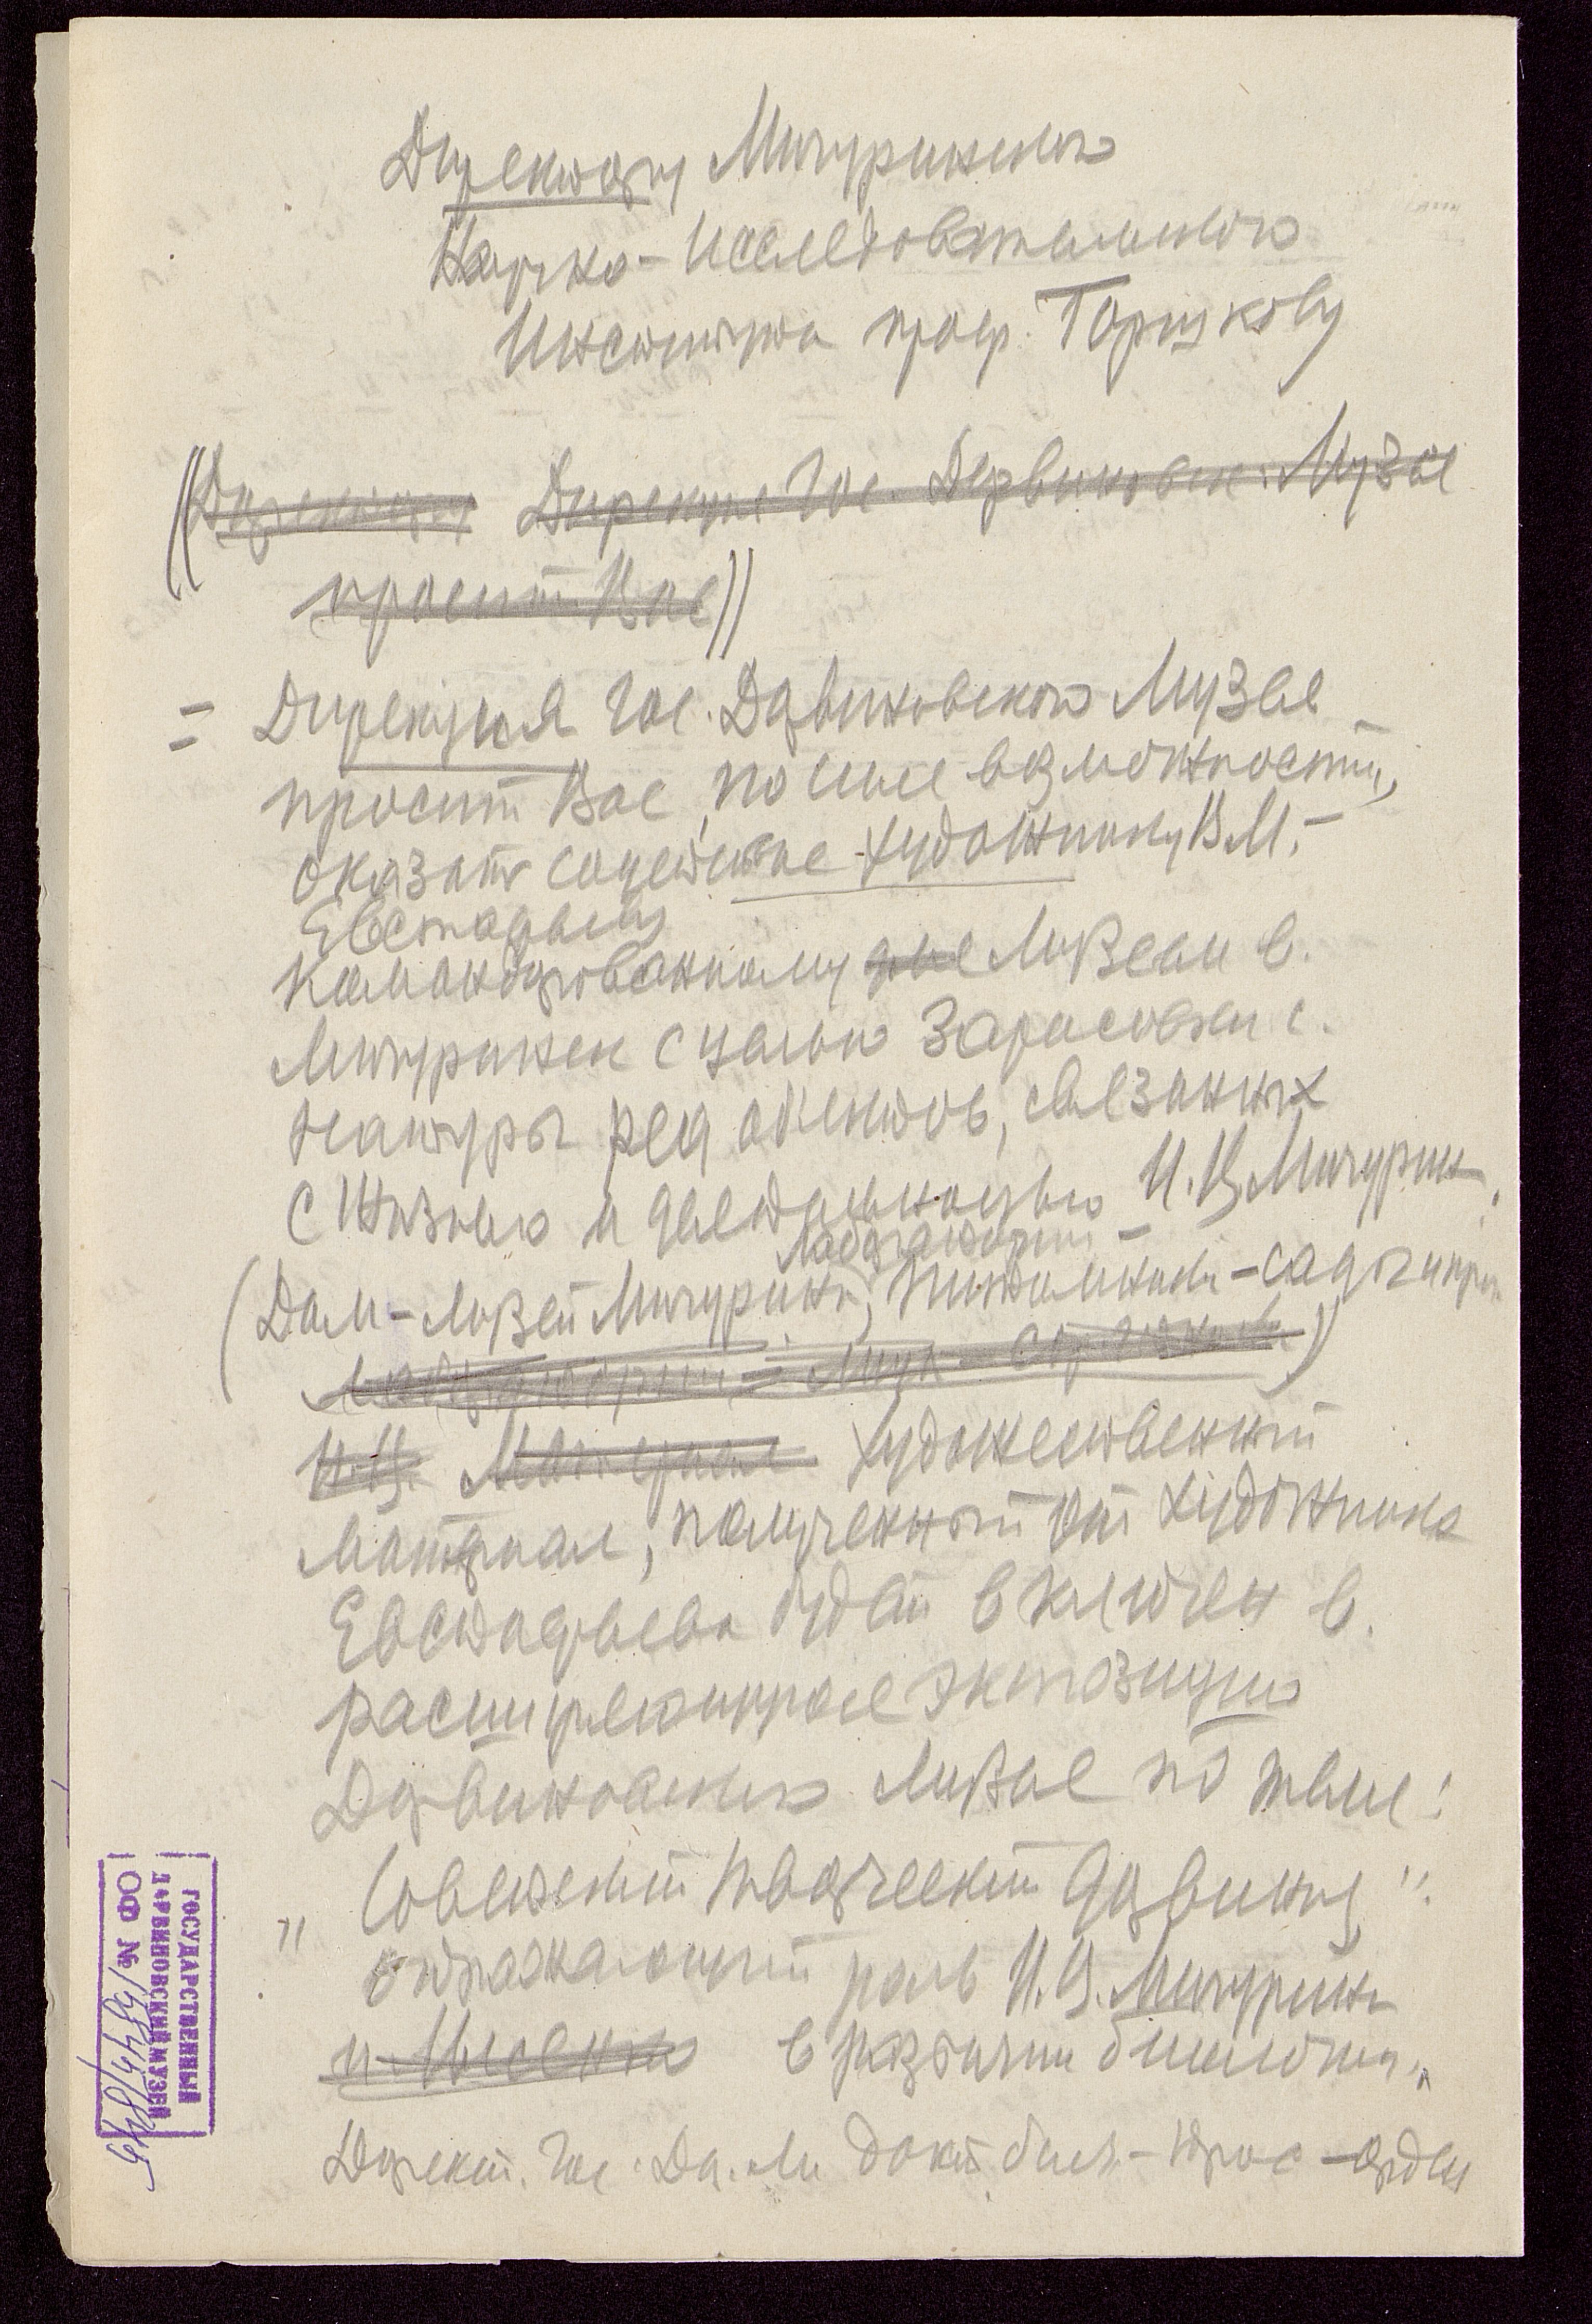 Директору Мичуринского
Научно-Исследовательского
Института проф. Горшкову
((Директору Дирекция Гос. Дарвиновск. Музея
просит Вас))
= Дирекция Гос. Дарвиновского Музея
просит Вас, по мере возможности,
оказать содействие художнику В.М.
Евстафьеву
командированному Музеем в
Мичуринск с целью зарисовки с
натуры ряд об'ектов, связанных
с жизнью и деятельностью И.В. Мичурина.
Лаборатории
(Дом-музей Мичурина, питомники-сады
Лаборатории
И.В. Материал Художественный
материал, полученный от художника
Евстафьева будет включен в
расширенную экспозицию
Дарвиновского Музея по теме:
"Советский творческий дарвинизм"
отражающий роль И.В. Мичурина
и Лысенко в развитии биологии.
Директ. Гос. Да. Му докт биол. проф орден
ГОСУДАРСТВЕННЫЙ
ДАРВИНОВСКИЙ МУЗЕЙ
ОФ №